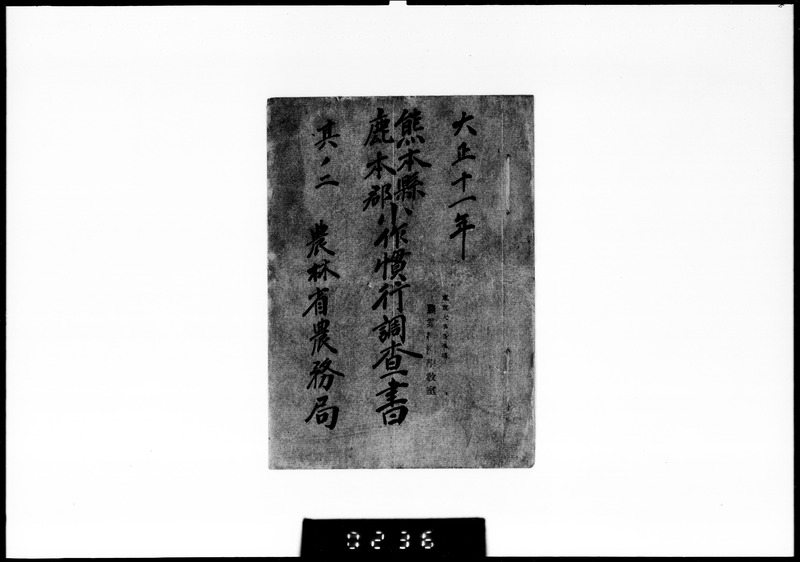 大正十一年
熊本縣
鹿本郡
小作慣行調査書
其ノ二
農林省農務局
教室
0236